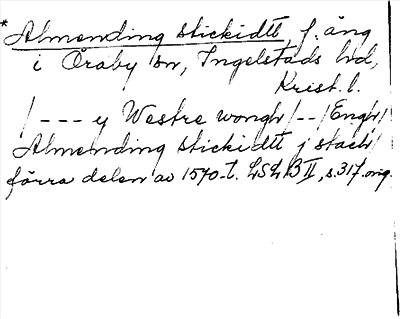 *Almending stickidtt, f. äng
i Öraby sn, Ingelstads hd,
Krist. l.
/--- y Westre wongh/--/Engh/
Almending stickidtt j stach/
förra delen av 1570-t. LSLB II, s. 317. orig.